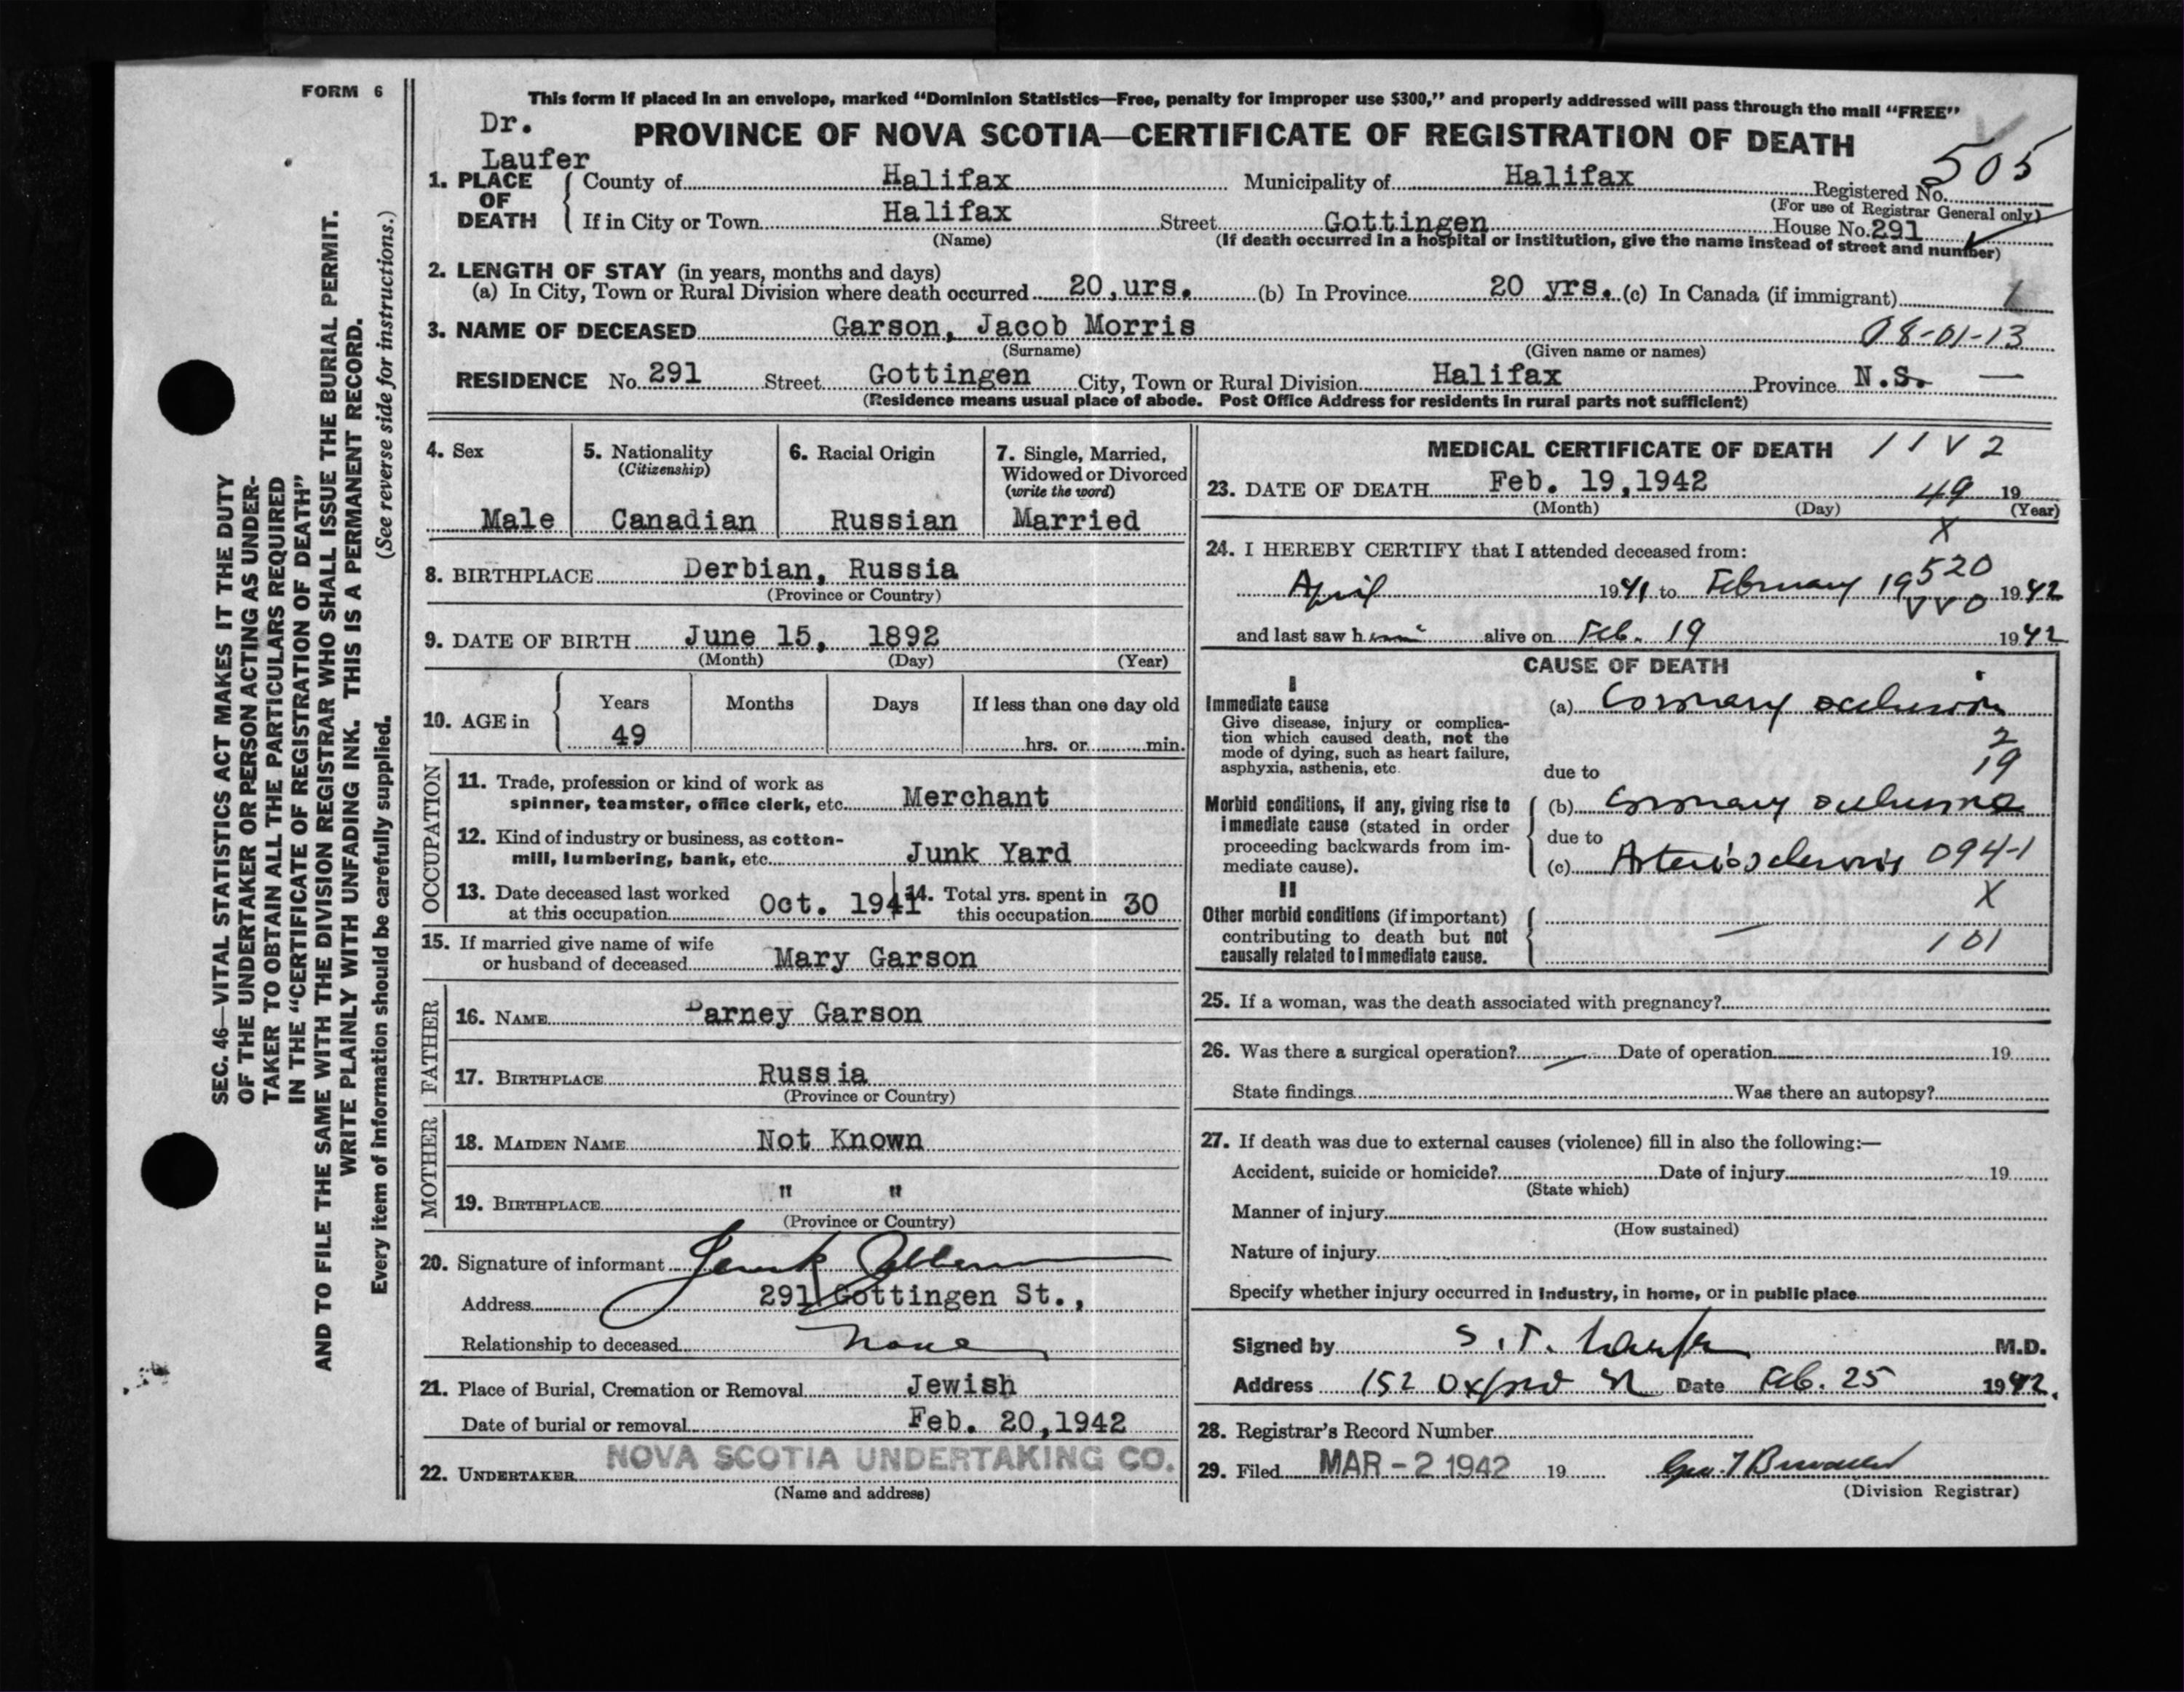 FORM 6
SEC. 46—VITAL STATISTICS ACT MAKES IT THE DUTY
OF THE UNDERTAKER OR PERSON ACTING AS UNDER-
TAKER TO OBTAIN ALL THE PARTICULARS REQUIRED
IN THE "CERTIFICATE OF REGISTRATION OF DEATH"
AND TO FILE THE SAME WITH THE DIVISION REGISTRAR WHO SHALL ISSUE THE BURIAL PERMIT.
WRITE PLAINLY WITH UNFADING INK. THIS IS A PERMANENT RECORD.
Every item of information should be carefully supplied. (See reverse side for instructions.)
This form if placed in an envelope, marked "Dominion Statistics—Free, penalty for improper use $300," and properly addressed will pass through the mail "FREE"
Dr.
Laufer
PROVINCE OF NOVA SCOTIA—CERTIFICATE OF REGISTRATION OF DEATH
1. PLACE OF DEATH
County of Halifax Municipality of Halifax Registered No. 505
(For use of Registrar General only)
If in City or Town Halifax Street Gottingen House No. 291
(Name) (If death occurred in a hospital or institution, give the name instead of street and number)
2. LENGTH OF STAY (in years, months and days)
(a) In City, Town or Rural Division where death occurred 20,urs. (b) In Province 20 yrs. (c) In Canada (if immigrant)
3. NAME OF DECEASED Garson, Jacob Morris 08-01-13
(Surname) (Given name or names)
RESIDENCE No. 291 Street Gottingen City, Town or Rural Division Halifax Province N.S. —
(Residence means usual place of abode. Post Office Address for residents in rural parts not sufficient)
4. Sex
Male
5. Nationality
(Citizenship)
Canadian
6. Racial Origin
Russian
7. Single, Married,
Widowed or Divorced
(write the word)
Married
8. BIRTHPLACE Derbian, Russia
(Province or Country)
9. DATE OF BIRTH June 15, 1892
(Month) (Day) (Year)
10. AGE in
Years Months Days If less than one day old
49 hrs. or min.
OCCUPATION
11. Trade, profession or kind of work as
spinner, teamster, office clerk, etc. Merchant
12. Kind of industry or business, as cotton-
mill, lumbering, bank, etc. Junk Yard
13. Date deceased last worked
at this occupation Oct. 1941
14. Total yrs. spent in
this occupation 30
15. If married give name of wife
or husband of deceased Mary Garson
FATHER
16. NAME Parney Garson
17. BIRTHPLACE Russia
(Province or Country)
MOTHER
18. MAIDEN NAME Not Known
19. BIRTHPLACE " "
(Province or Country)
20. Signature of informant
Address 291 Gottingen St.,
Relationship to deceased None
21. Place of Burial, Cremation or Removal Jewish
Date of burial or removal Feb. 20,1942
22. UNDERTAKER NOVA SCOTIA UNDERTAKING CO.
(Name and address)
MEDICAL CERTIFICATE OF DEATH 11 V 2
23. DATE OF DEATH Feb. 19,1942 49 19
(Month) (Day) (Year)
X
24. I HEREBY CERTIFY that I attended deceased from:
520
April 1941 to February 19 1942
VVO
and last saw him alive on Feb. 19 1942
CAUSE OF DEATH
I
Immediate cause
Give disease, injury or complica-
tion which caused death, not the
mode of dying, such as heart failure,
asphyxia, asthenia, etc.
(a) Coronary occlusion
2
19
due to
Morbid conditions, if any, giving rise to
immediate cause (stated in order
proceeding backwards from im-
mediate cause).
(b) Coronary
due to
(c) Arteriosclerosis 094-1
X
II
Other morbid conditions (if important)
contributing to death but not
causally related to immediate cause.
—
101
25. If a woman, was the death associated with pregnancy?
26. Was there a surgical operation? — Date of operation 19
State findings Was there an autopsy?
27. If death was due to external causes (violence) fill in also the following:—
Accident, suicide or homicide? Date of injury 19
(State which)
Manner of injury
(How sustained)
Nature of injury
Specify whether injury occurred in industry, in home, or in public place
Signed by S. T. Laufer M.D.
Address 152 Oxford St Date Feb. 25 1942.
28. Registrar's Record Number
29. Filed MAR - 2 1942 19
(Division Registrar)